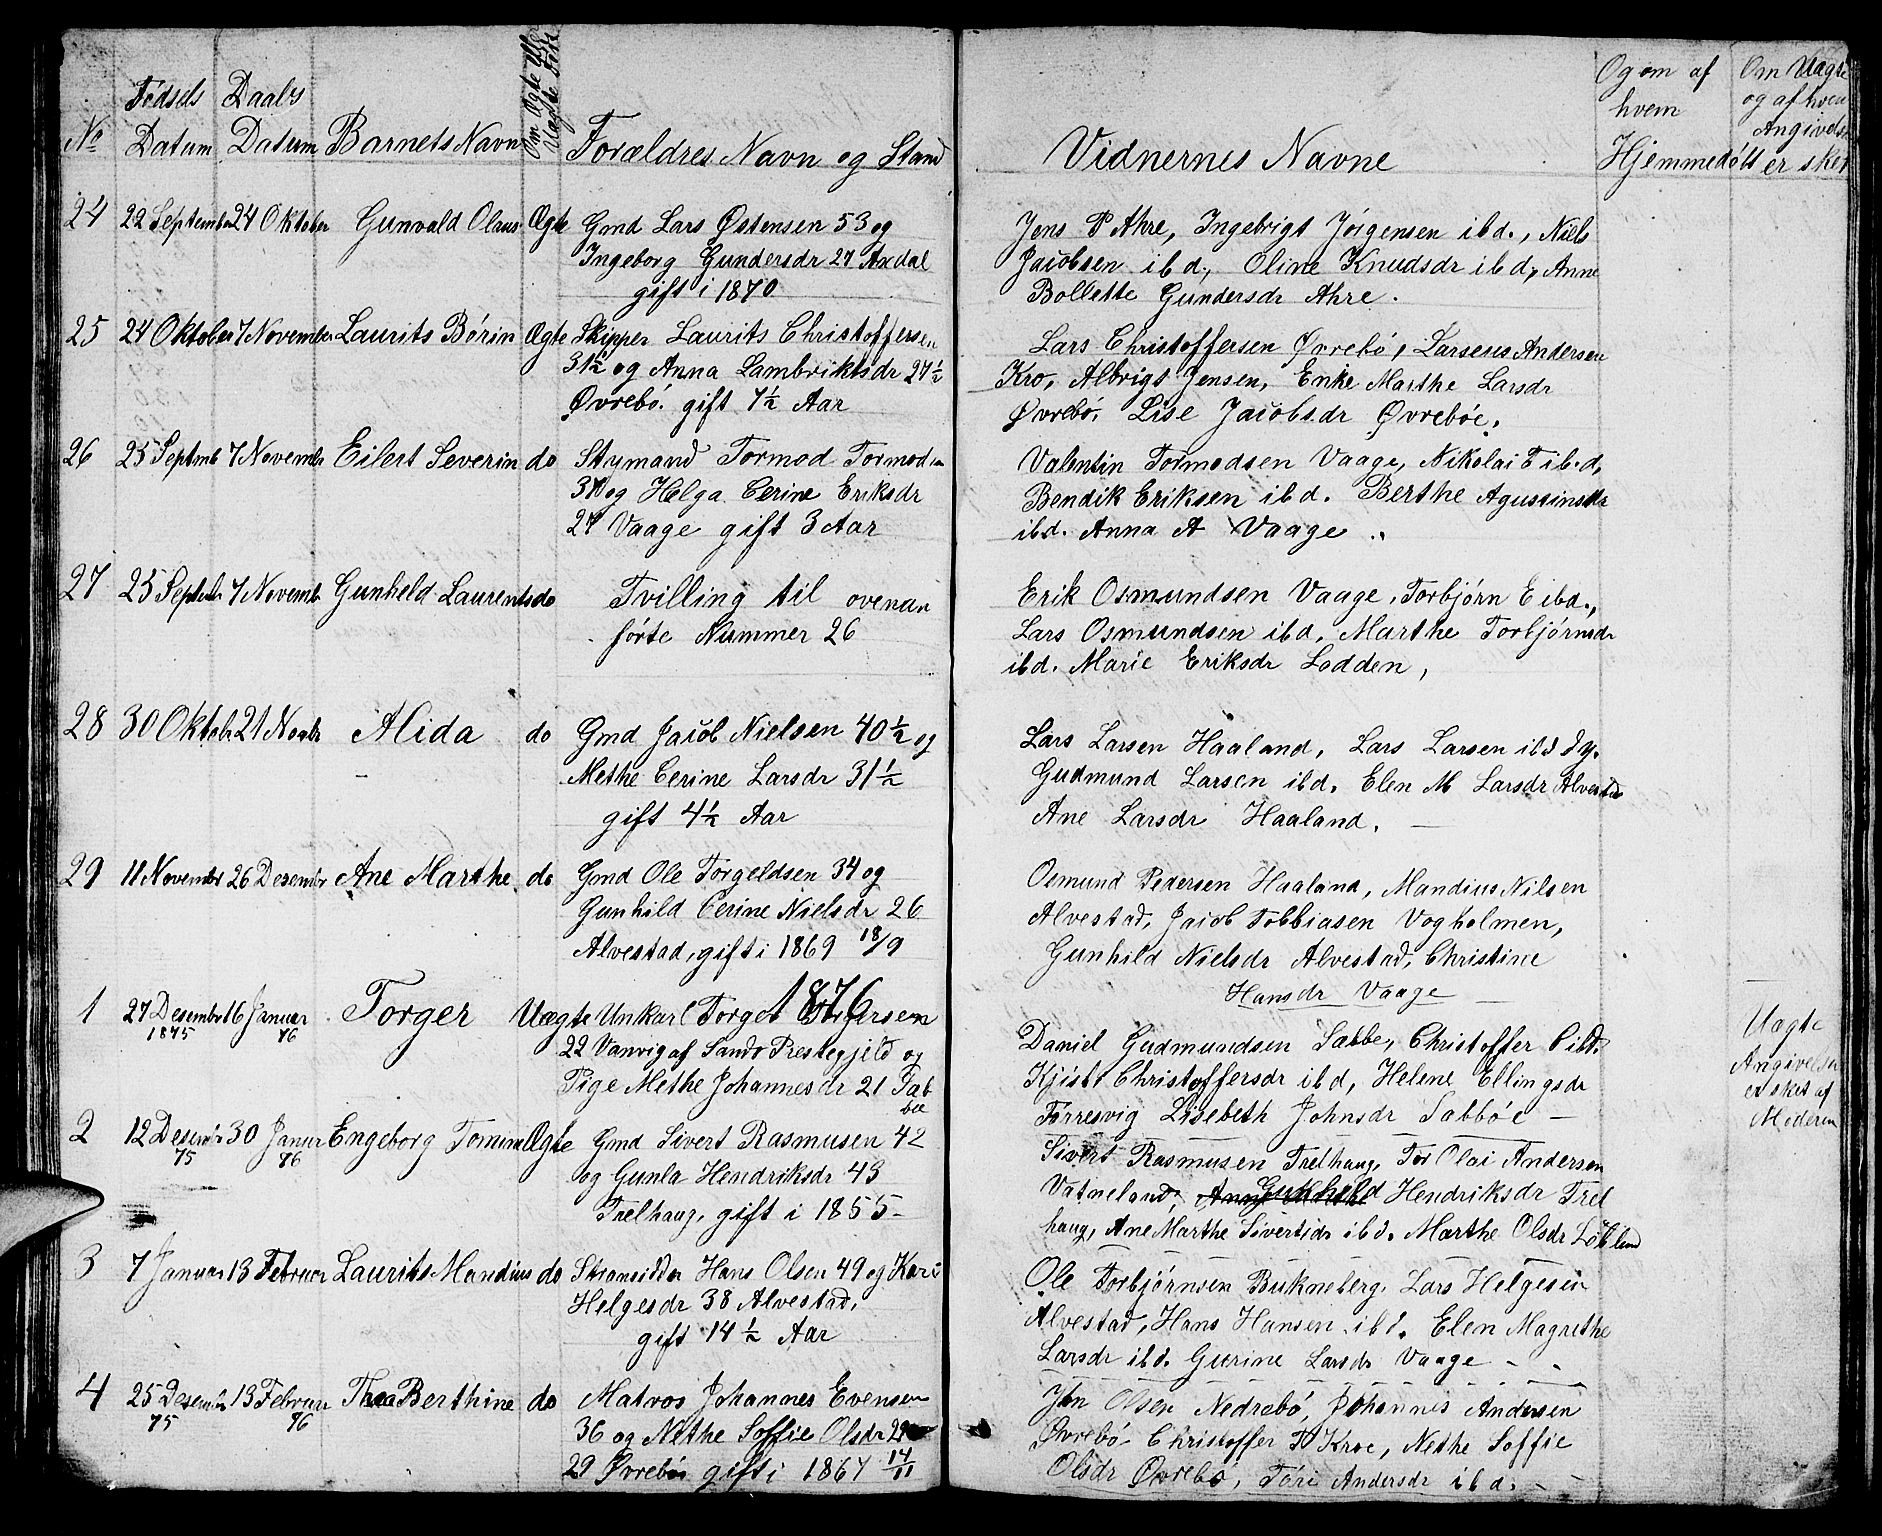 No
Fødsels Datum
Daabs Datum
Barnets Navn
Om Ægte eller Uægte Født
Forældres Navn og Stand
Vidnernes Navne
Og om af
hvem
Hjemmedøbt
Om Uægte
og af hvem
Angivelsen
er sket
24 22 September 24 Oktober Gunvald Olaus Ægte Gmd Lars Østensen 53 og
Ingeborg Gundersdr 27 Axdal
gift i 1870
Jens P Ahre, Ingebrigt Jørgensen ibd., Niels
Jacobsen ibd, Oline Knudsdr ibd, Anne
Bollette Gundersdr Ahre.
25 24 Oktober 7 November Laurits Børin Ægte Skipper Laurits Christoffersen
31½ og Anna Lambriktsdr 27½
Øvrebø. gift 7½ Aar
Lars Christoffersen Øvrebø, Larseus Andersen
Kro, Albrigt Jensen, Enke Marthe Larsdr
Øvrebø, Lise Jacobsdr Øvrebøe.
26 25 Septmb 7 Novembr Eilert Severin do Stymand Tormod Tormods
og Helga Cerine Eriksdr
27 Vaage gift 3 Aar
Valentin Tormodsen Vaage, Nikolai T ibd,
Bendik Eriksen ibd. Berthe Agustinsdr
ibd. Anna A Vaage
27 25 Septmb 7 Novemb Gunheld Laurents do Tvilling til ovenan
førte Nummer 26
Erik Osmundsen Vaage, Torbjørn E ibd.,
Lars Osmundsen ibd, Marthe Torbjørnsdr
ibd. Marie Eriksdr Lodden,
28 30 Oktobr 21 Novbr Alida do Gmd Jacob Nielsen 40½ og
Methe Cerine Larsdr 31½
gift 4½ Aar
Lars Larsen Haaland, Lars Larsen ibd dy.
Gudmund Larsen ibd. Elen M Larsdr Alvestad
Ane Larsdr Haaland.
29 11 Novembr 26 Desembr Ane Marthe do Gmd Ole Torgeldsen 34 og
Gunhild Cerine Nielsdr 26
Alvestad, gift i 1869 18/9
Osmund Pedersen Haaland, Mandius Nilsen
Alvestad, Jacob Tobbiasen Vogholmen,
Gunhild Nielsdr Alvestad, Christine
Hansdr Vaage
1876
1 27 Desembr 1875 16 Januar 76 Torger Uægte Unkarl Torger Torgersen
22 Vanvig af Sands Prestegjeld og
Pige Methe Johannesdr 21 Sab
bøe
Daniel Gudmundsen Sabbe, Christoffer C ibd.
Christoffersdr ibd, Helene Ellingsdr
Førresvig Lisebeth Johnsdr Sabbøe
Uægte
Angivelsen
er sket af
Moderen
2 12 Desembr 75 30 Januar 76 Engeborg Tomine Ægte Gmd Sivert Rasmusen 42
og Gunla Hendriksdr 43
Trelhaug, gift i 1855
Sivert Rasmusen Trelhaug, Tor Olai Andersen
Vatneland, Gunheld Hendriksdr Trel
haug, Ane Marthe Sivertsdr ibd. Marthe Olsdr
3 7 Januar 13 Februar Laurits Mandius do Stransidder Hans Olsen 49 og Kari
Helgesdr 38 Alvestad,
gift 14½ Aar
Ole Torbjørnsen Bukneberg, Lars Helgesen
Alvestad, Hans Hansen ibd. Elen Magrethe
Larsdr ibd. Gurine Larsdr Vaage
4 25 Desembr 75 13 Februar 76 Thea Berthine do Matros Johannes Evensen
36 og Nethe Soffie Olsdr
29 Øvrebø gift i 1867 14/11
Jon Olsen Nedrebø, Johannis Andersen
Øvrebø Christoffer T Kroe, Nethe Soffie
Olsdr Øvrebø, Tøri Andersdr ibd.